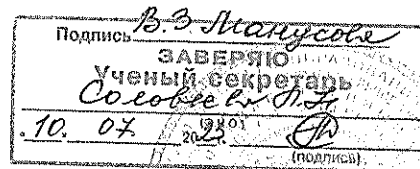 Подпись В.З. Манусова
ЗАВЕРЯЮ
Ученый секретарь
Соловьев
10. 07 2023
(подпись)